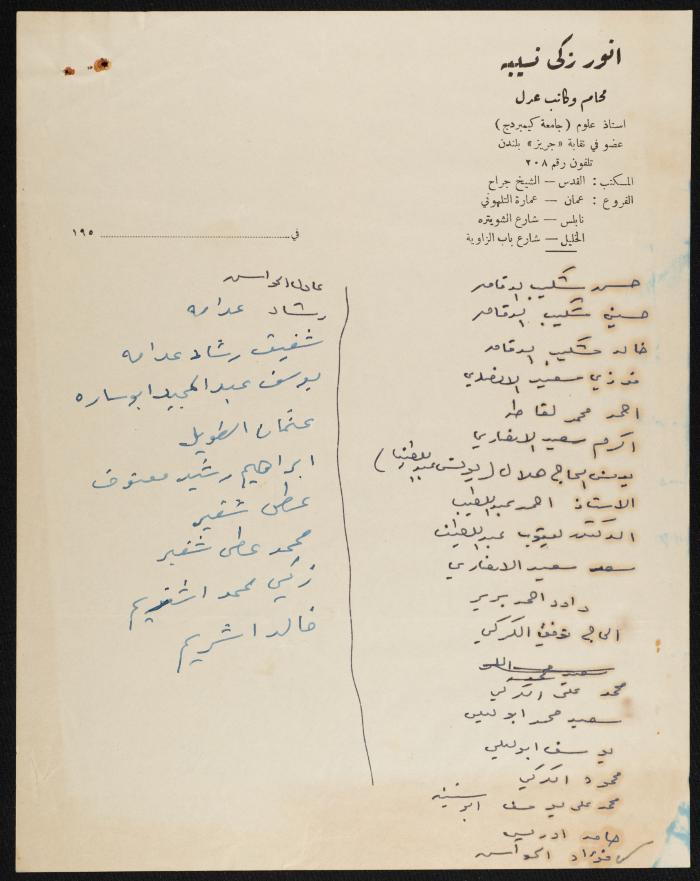 انور زكي نسيبه
محام وكاتب عدل
استاذ علوم (جامعة كيمبردج)
عضو في نقابة «جريز» بلندن
تلفون رقم ٢٠٨
المكتب : القدس — الشيخ جراح
الفروع : عمان — عمارة التلهوني
نابلس — شارع الشويتره
الخليل — شارع باب الزاوية
في ١٩٥
شكيب
شكيب
خالد شكيب
فوزي سعيد
احمد محمد
اكرم سعيد الانصاري
يونس الحاج هلال (يونس
الاستاذ احمد عبد اللطيف
الدكتور يعقوب عبد اللطيف
سعد سعيد الانصاري
داود احمد بربر
الحاج توفيق الكركي
محمد علي الكركي
سعيد محمد ابو ليلى
يوسف ابو ليلى
محمود الكركي
محمد علي يوسف ابو سنينه
حامد ادريس
فؤاد الحواس
عادل الحواس
رشاد
شفيق رشاد
يوسف عبد المجيد ابو ساره
عثمان الطويل
ابراهيم رشيد معتوق
شقير
محمد شقير
زكي محمد
خالد اشريم